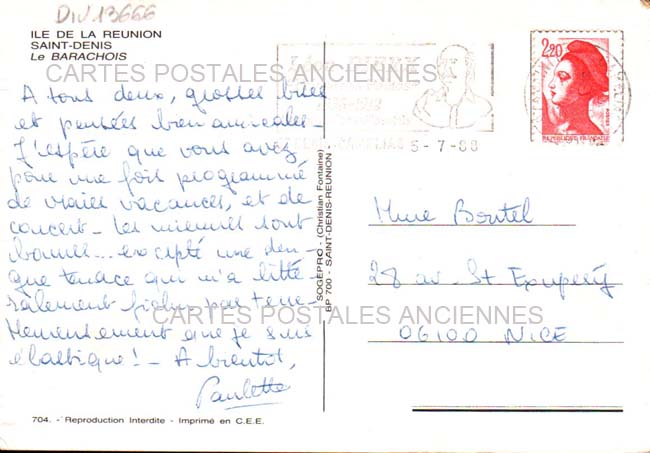 DIV13666
ILE DE LA REUNION
SAINT-DENIS
Le BARACHOIS
CARTES POSTALES ANCIENNES
2,20
REPUBLIQUE FRANÇAISE
5-7-88
A tous deux, grosses bises
et pensées bien amicales -
J'espère que vous avez
pour une fois programmé
de vraies vacances, et de
concert - Les miennes sont
bonnes... excepté une den-
gue tenace qui m'a litté-
ralement fichue par terre -
Heureusement que je suis
élastique ! - A bientôt,
Paulette
SOGEPRO - (Christian Fontaine)
BP 700 - SAINT-DENIS-REUNION
Mme Boutel
28 av. St Exupéry
CARTES POSTALES ANCIENNES
06100 NICE
704. - Reproduction Interdite - Imprimé en C.E.E.